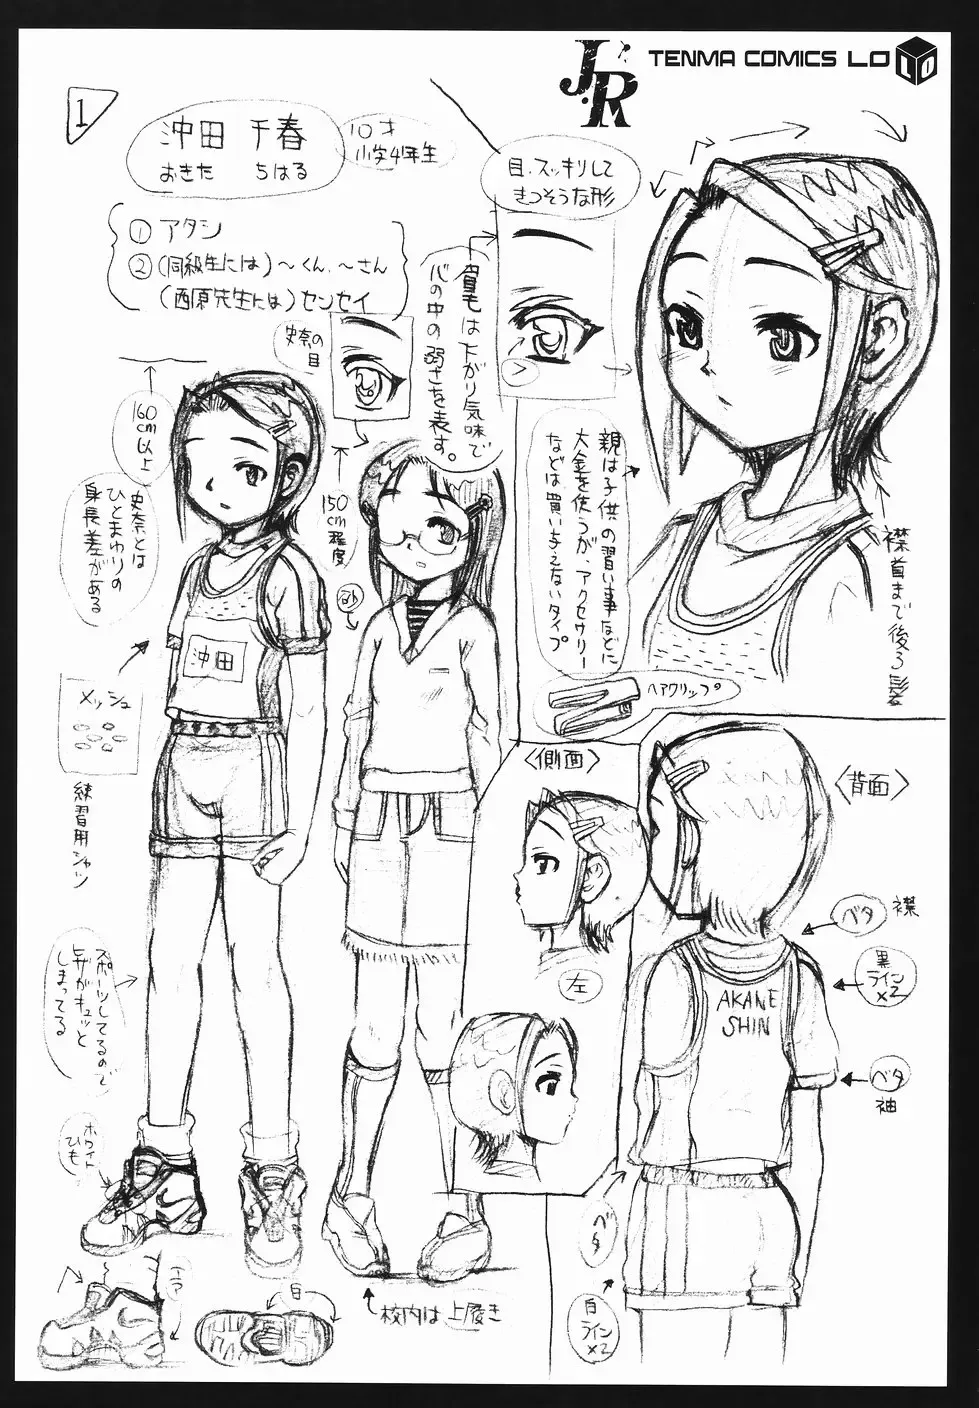 JR
TENMA COMICS LO
LO
1
沖田 千春
おきた ちはる
10才
小学4年生
① アタシ
② (同級生には)〜くん、〜さん
(西原先生には)センセイ
目、スッキリして
きつそうな形
眉毛は下がり気味で
心の中の弱さを表す。
史奈の
目
160
cm
以上
史奈とは
ひとまわりの
身長差がある
150
cm
程度
親は子供の習い事などに
大金を使うが、アクセサリー
などは買い与えないタイプ
ヘアクリップ
襟首まで後ろ髪
沖田
メッシュ
練習用シャツ
〈側面〉
左
〈背面〉
ベタ
襟
黒
ライン
×2
AKANE
SHIN
ベタ
袖
ベタ
白
ライン
×2
ホワイト
ひも
エア
白
校内は上履き